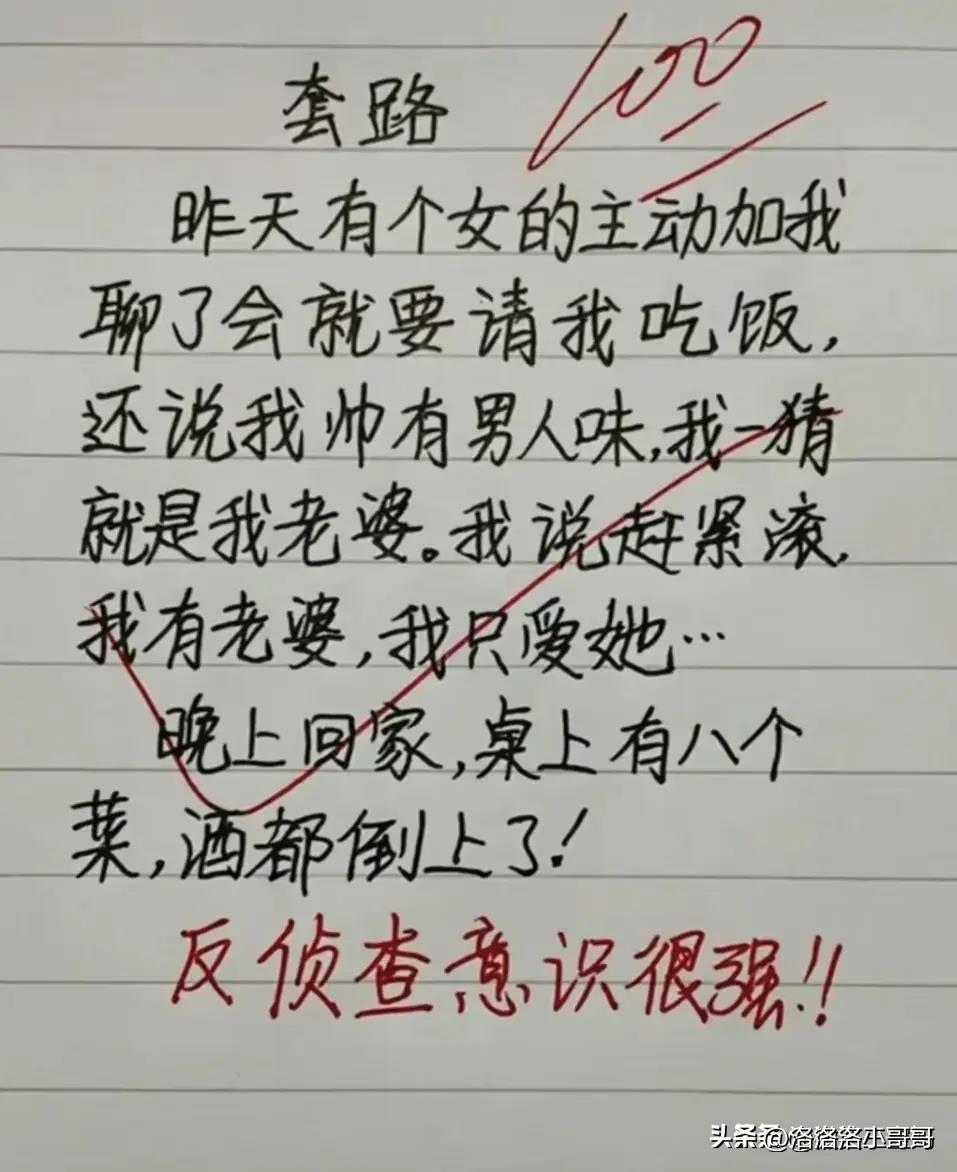 套路
100
昨天有个女的主动加我
聊了会就要请我吃饭,
还说我帅有男人味,我一猜
就是我老婆。我说赶紧滚.
我有老婆,我只爱她…
晚上回家,桌上有八个
菜,酒都倒上了!
反侦查意识很强!!
头条 @洛洛洛小哥哥